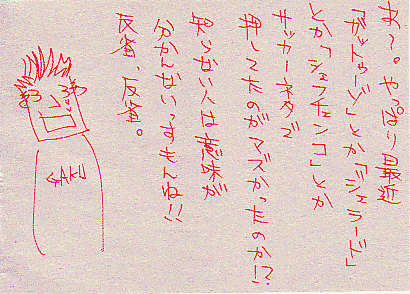 あ〜。やっぱり最近
「ガットゥーゾ」とか「ジェラード」
とか「シェフチェンコ」とか
サッカーネタで
押してたのがマズかったのか!?
知らない人は意味が
分かんないっすもんね!!
反省、反省。
GAKU